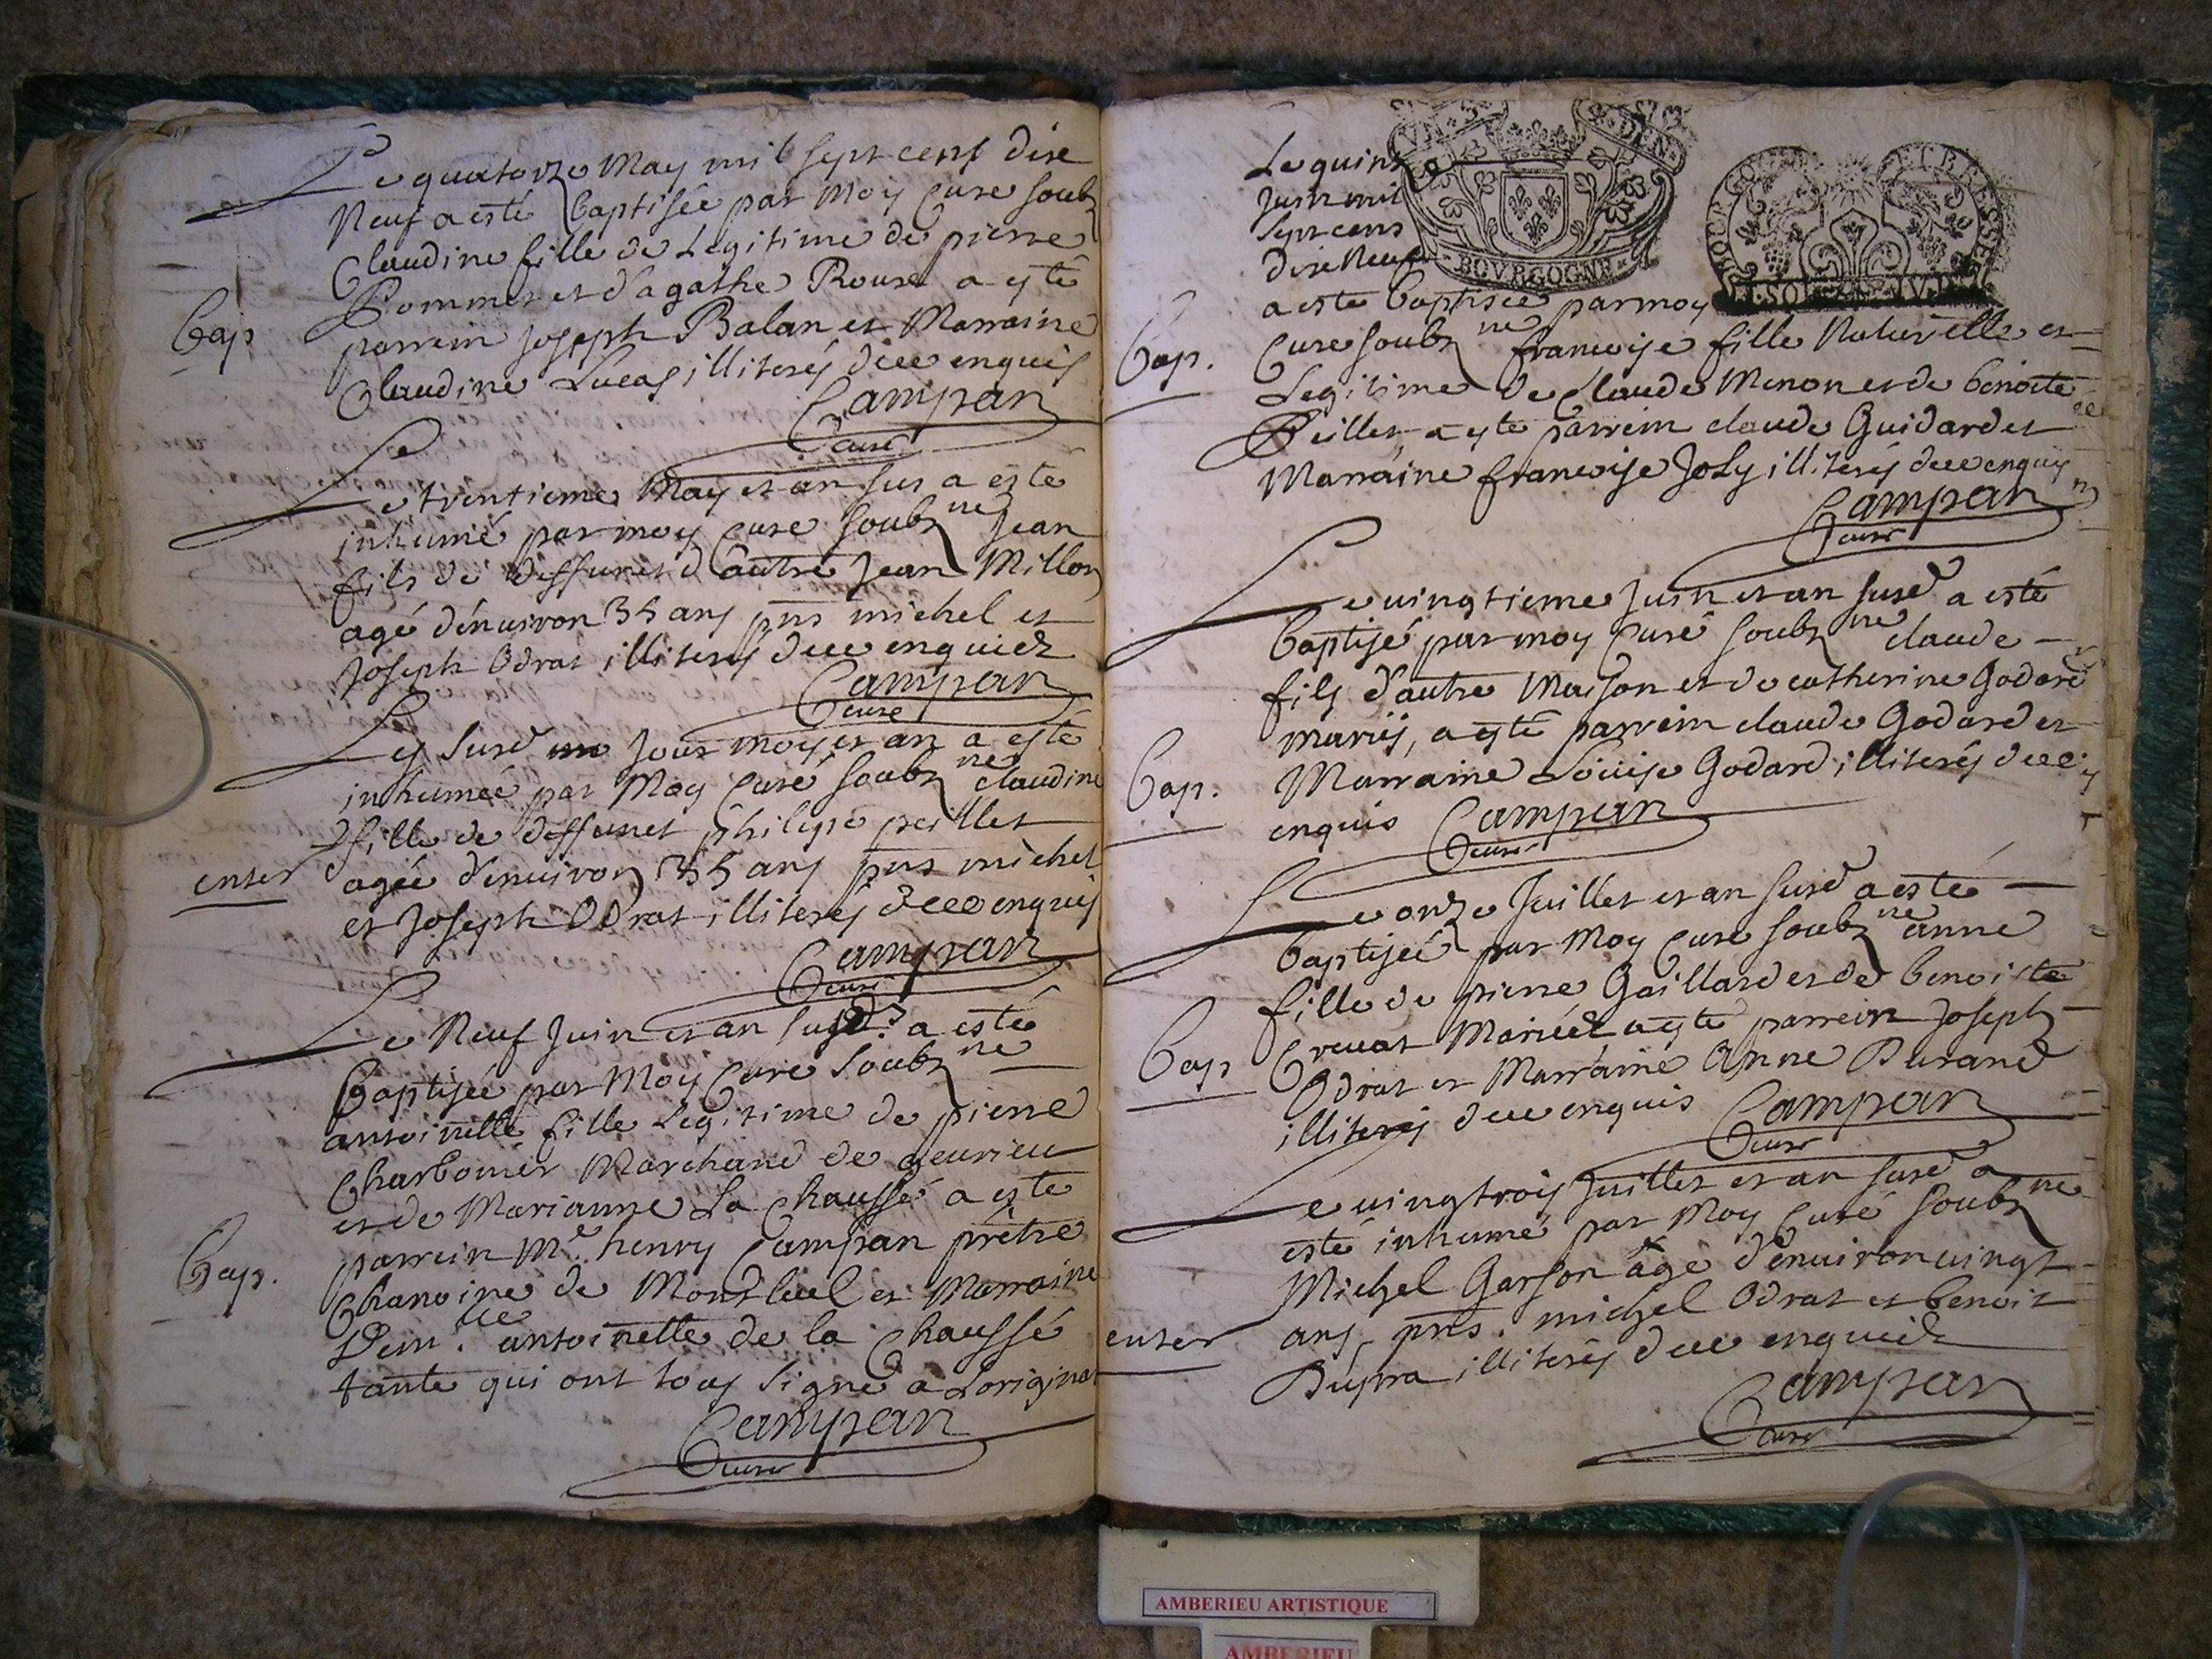 Le quatorze May mil sept cent dixe
Neuf a esté baptisée par Moy Curé soubz
Claudine fille de Legitime de pierre
Pommet et d'agathe Rouse a esté
Bap
parrein Joseph Balan et Marraine
Claudine Lucas illiterés deue enquis
Campan
Curé
Le trentieme May et an sus a esté
inhumé par moy Curé soubz ne Jean
fils de deffunct d'autre Jean Millon
agé d'enuiron 35 ans pns michel et
Joseph Odrat illiterés deue enquiez
Campan
Curé
Les susd jour moys et an a esté
inhumée par Moy Curé soubz ne claudine
fille de deffunct philipe peillet
enter
agée d'enuiron 35 ans pns michel
et Joseph Odrat illiterés deue enquis
Campan
Curé
Le Neuf Juin et an susd. a esté
Baptisée par Moy Curé soubz ne
antoinette fille Legitime de pierre
Charbonier Marchand de
et de Marianne La Chaussé a este
parrein Mre. henry Campan prêtre
Bap.
Chanoine de Montluel et Marraine
Dem.lle antoinette de la Chaussé
tante qui ont tous signé a Loriginal
Campan
Curé
Le quinze
Juin mil
Sept cens
dixe Neuf
BOVRGOGNE
BOVRGOGNE ET BRESSE
a este baptisée par moy
Bap.
Curé soubz ne francoise fille Naturelle et
Legitime de Claude Menon et de benoite
Peillet a este parrein claude Guidard et
Marraine francoise Joly illiterés deue enquis
Campan
Curé
Le uingtieme Juin et an susd a esté
baptisé par moy Curé soubz ne claude
fils d'autre Maison et de catherine Godard
mariés, a esté parrein claude Godard et
Bap.
Marraine Louise Godard illiterés deue
enquis Campan
Curé
Le onze Juillet et an susd a estée
baptisée par Moy Curé soubz ne anne
fille de pierre Gaillard et de benoiste
Bap
Creuat Mariéz a esté parrein Joseph
Odrat et Marraine Anne Durand
illiterés deue enquis Campan
Curé
Le uingtrois Juillet et an susd a
esté inhumé par Moy Curé soubz ne
Michel Garson âgé d'enuiron uingt
enter
ans, pns. michel Odrat et benoit
Dupra illiterés deue enquiéz
Campan
Curé
AMBERIEU ARTISTIQUE
AMBERIEU